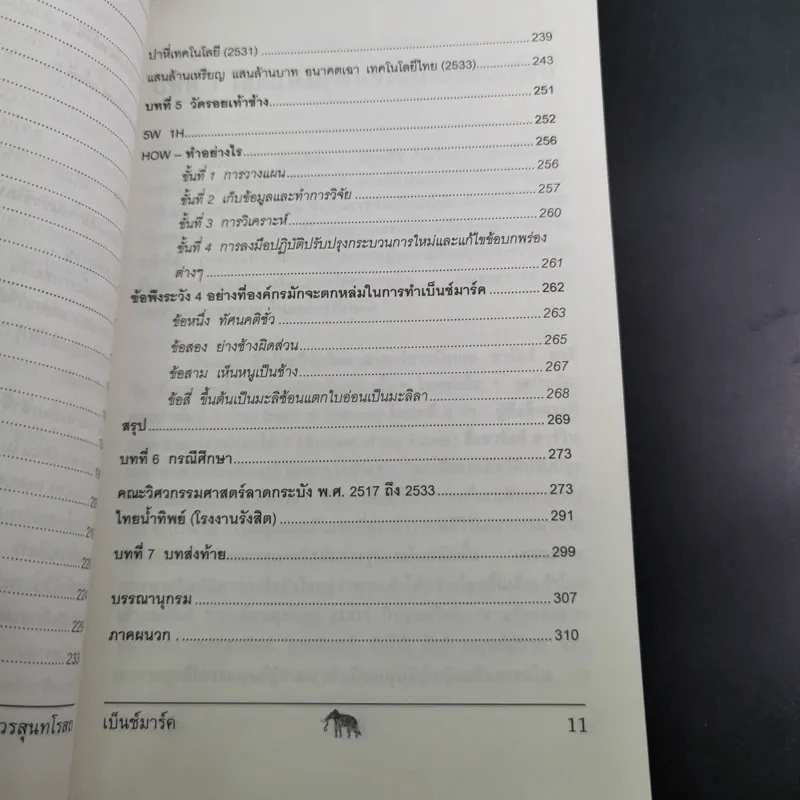 ปาที่เทคโนโลยี (2531) 239
แสนล้านเหรียญ แสนล้านบาท อนาคตเฉา เทคโนโลยีไทย (2533) 243
บทที่ 5 วัดรอยเท้าช้าง 251
5W 1H 252
HOW – ทำอย่างไร 256
ขั้นที่ 1 การวางแผน 256
ขั้นที่ 2 เก็บข้อมูลและทำการวิจัย 257
ขั้นที่ 3 การวิเคราะห์ 260
ขั้นที่ 4 การลงมือปฏิบัติปรับปรุงกระบวนการใหม่และแก้ไขข้อบกพร่อง
ต่างๆ 261
ข้อพึงระวัง 4 อย่างที่องค์กรมักจะตกหล่มในการทำเบ็นช์มาร์ค 262
ข้อหนึ่ง ทัศนคติชั่ว 263
ข้อสอง ย่างช้างผิดส่วน 265
ข้อสาม เห็นหนูเป็นช้าง 267
ข้อสี่ ขึ้นต้นเป็นมะลิซ้อนแตกใบอ่อนเป็นมะลิลา 268
สรุป 269
บทที่ 6 กรณีศึกษา 273
คณะวิศวกรรมศาสตร์ลาดกระบัง พ.ศ. 2517 ถึง 2533 273
ไทยน้ำทิพย์ (โรงงานรังสิต) 291
บทที่ 7 บทส่งท้าย 299
บรรณานุกรม 307
ภาคผนวก 310
เบ็นช์มาร์ค 11
224
229
233
วรสุนทโรสถ